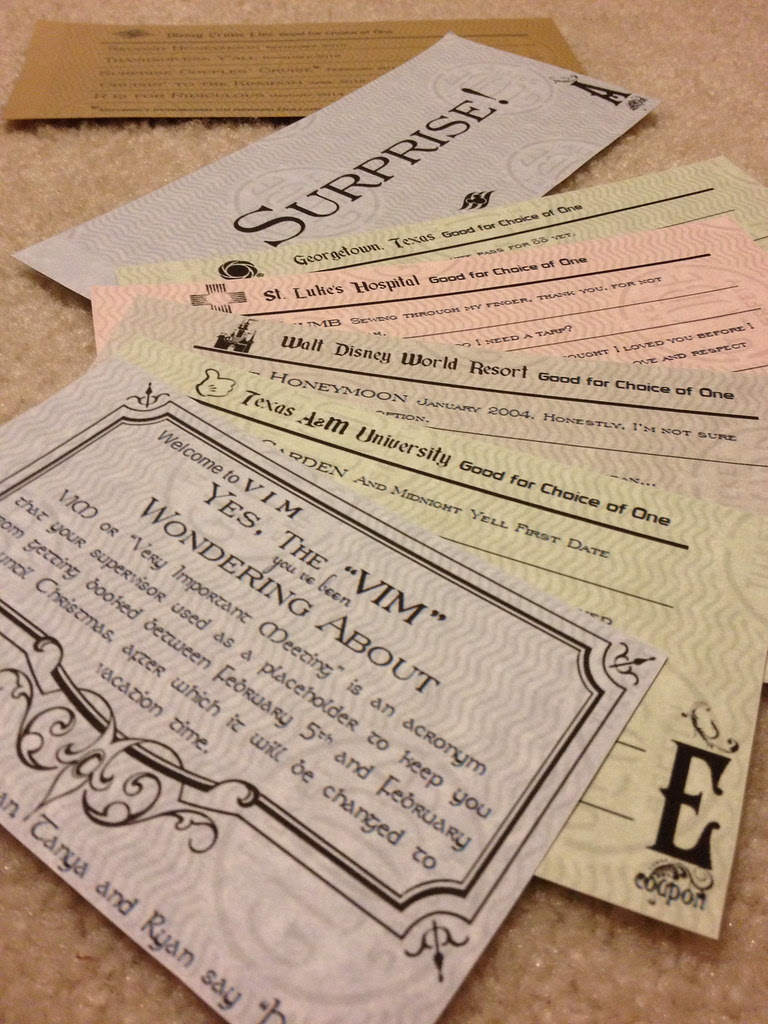 Disney Cruise Line Good for Choice of One
Second Honeymoon
Thanksgiving Y'all
Surprise Couples' Cruise*
Cruisin' to the Kingdom
R is for Ridiculous
SURPRISE!
A
Georgetown, Texas Good for Choice of One
PASS FOR 55 YET.
St. Luke's Hospital Good for Choice of One
UMB Sewing through my finger, thank you, for not
O I NEED A TARP?
OUGHT I LOVED YOU BEFORE I
OVE AND RESPECT
Walt Disney World Resort Good for Choice of One
Honeymoon January 2004. Honestly, I'm not sure
OPTION.
AN...
Texas A&M University Good for Choice of One
Garden And Midnight Yell First Date
E
coupon
Welcome to VIM
Yes, The "VIM"
you've been
Wondering About
VIM or "Very Important Meeting" is an acronym
that your supervisor used as a placeholder to keep you
from getting booked between February 5th and February
until Christmas, after which it will be changed to
vacation time.
an Tanya and Ryan say "h